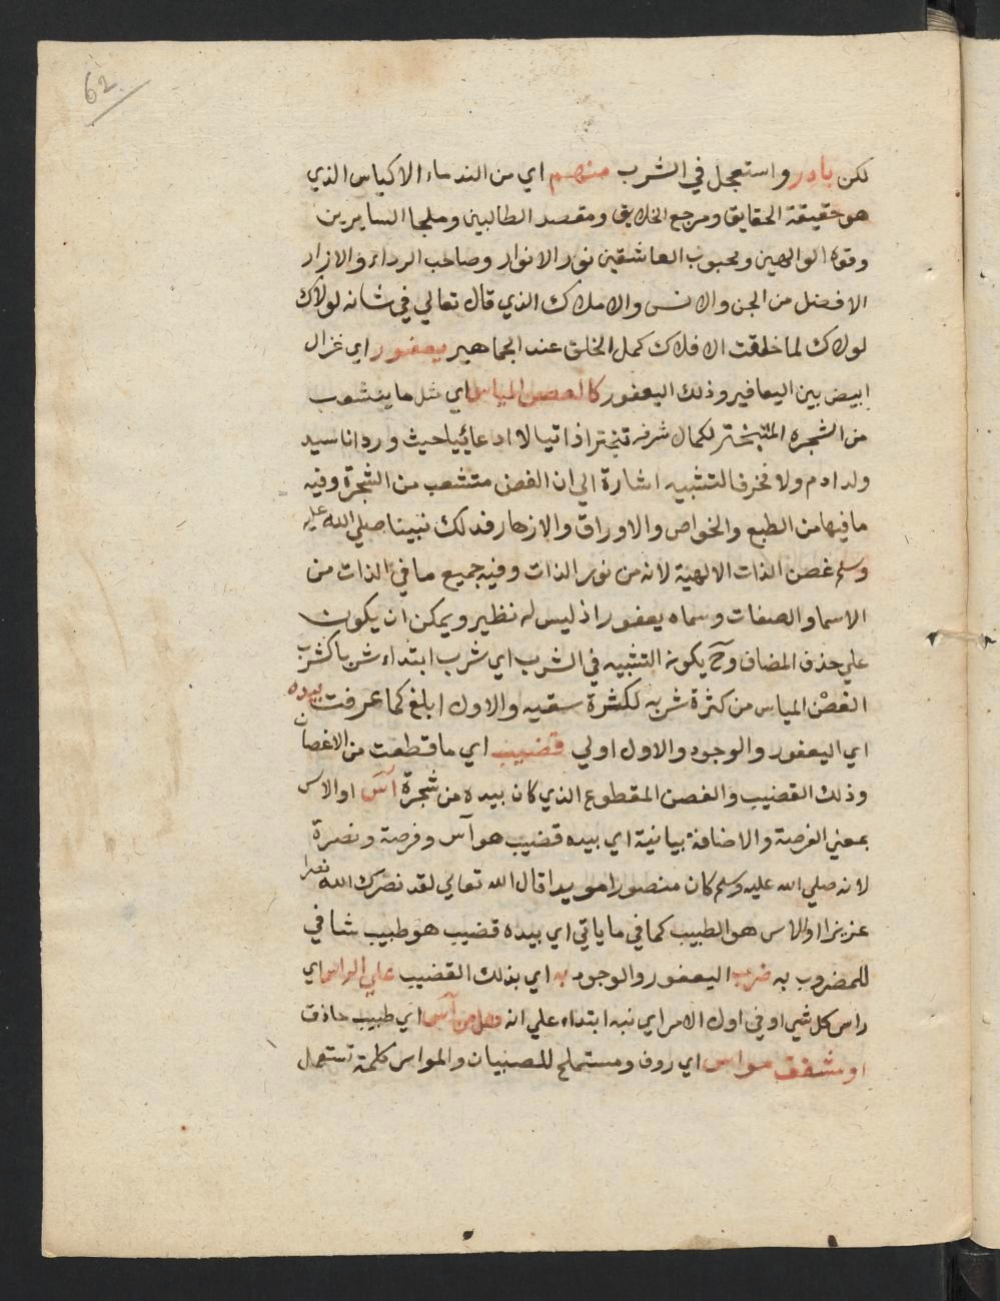 62
لكن بادر واستعجل في الشرب منهم اي من الندماء الاكياس الذي
هو حقيقة الحقايق ومرجع الخلايق ومقصد الطالبين وملجا السايرين
وقوة الوالهين ومحبوب العاشقين نور الانوار وصاحب الرداء والازار
الافضل من الجن والانس والاملاك الذي قال تعالي في شانه لولاك
لولاك لما خلقت الافلاك كمل الخلق عند الجماهير يعفور اي غزال
ابيض بين اليعافير وذلك اليعفور كالغصن المياس اي مثل ما ينشعب
من الشجره المتبختر لكمال شرفه تبخترا ذاتيا لا ادعائيا حيث ورد انا سيد
ولد ادم ولا فخر فالتشبيه اشارة الي ان الغصن متشعب من الشجرة وفيه
ما فيها من الطبع والخواص والاوراق والازهار فذلك نبينا صلي الله عليه
وسلم غصن الذات الالهية لانه من نور الذات وفيه جميع ما في الذات من
الاسما والصفات وسماه يعفورا اذ ليس له نظير ويمكن ان يكون
علي حذف المضاف وح يكون التشبيه في الشرب اي شرب ابتداء شربا كشرب
الغصن المياس من كثرة شربه لكثرة سقيه والاول ابلغ كما عرفت بيده
اي اليعفور والوجود والاول اولي قضيب اي ما قطعت من الاغصان
وذلك القضيب والغصن المقطوع الذي كان بيده من شجرة آس او الاس
بمعني الفرصة والاضافة بيانية اي بيده قضيب هو آس وفرصة ونصرة
لانه صلي الله عليه وسلم كان منصورا مويدا قال الله تعالي لقد نصرك الله نصرا
عزيزا او الاس هو الطبيب كما في ما ياتي اي بيده قضيب هو طبيب شافي
للمضروب به ضرب اليعفور والوجود به اي بذلك القضيب علي الراس اي
راس كل شي او في اول الامر اي نبه ابتداء علي انه وهل من آس اي طبيب حاذق
او مشفق مواس اي روف ومستملح للصبيان والمواس كلمة تستعمل